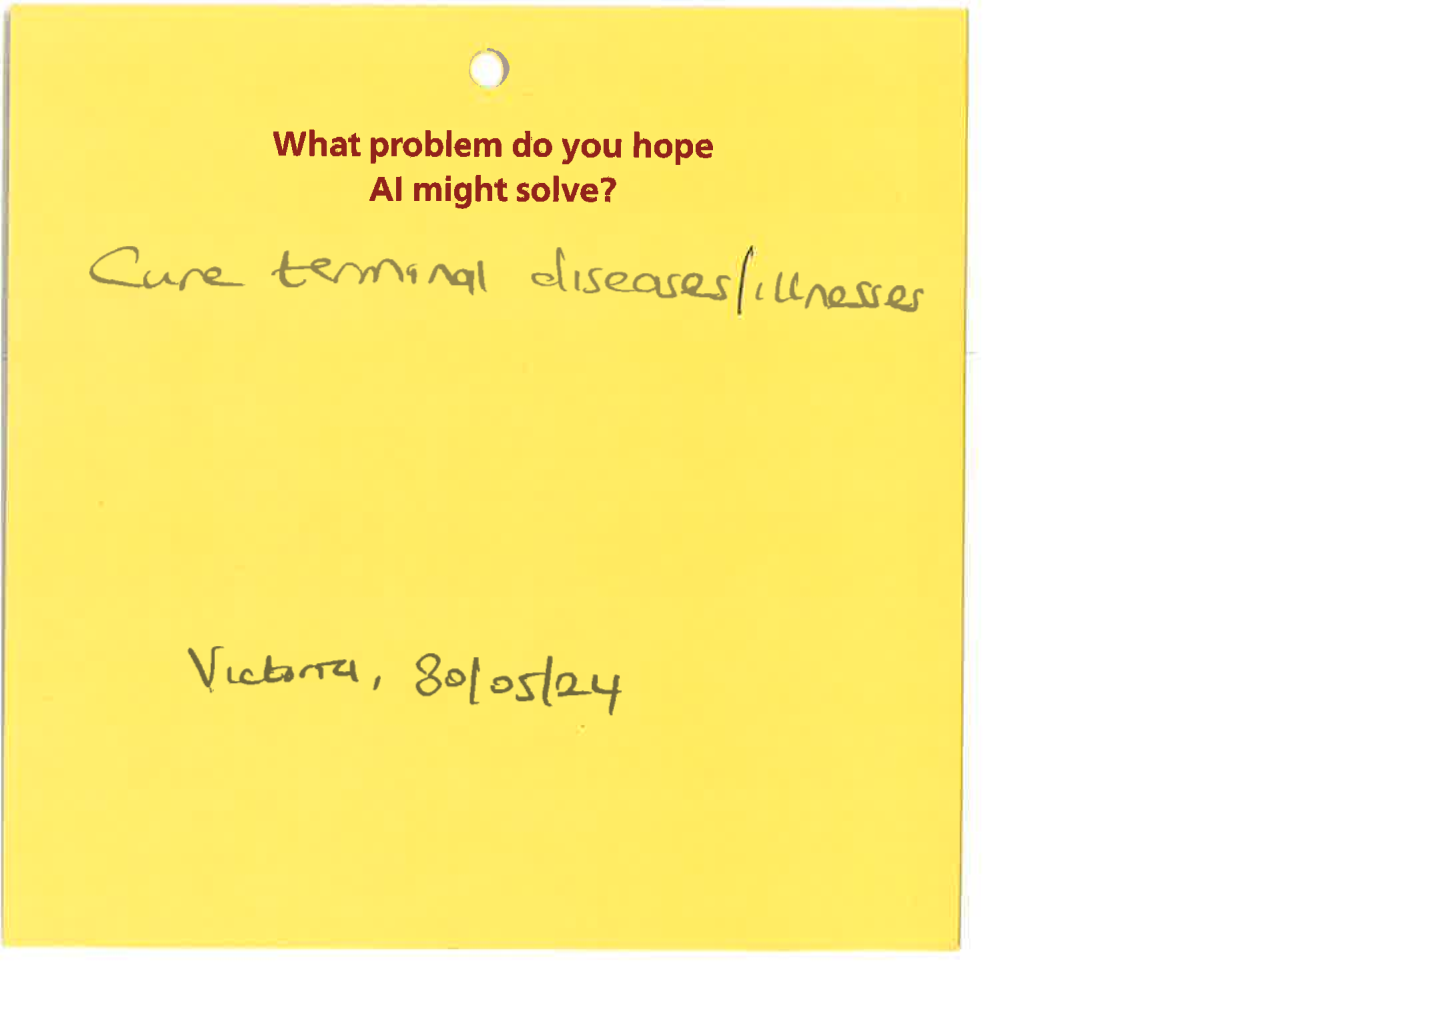 What problem do you hope
AI might solve?
Cure terminal diseases/illnesses
Victoria, 30/05/24